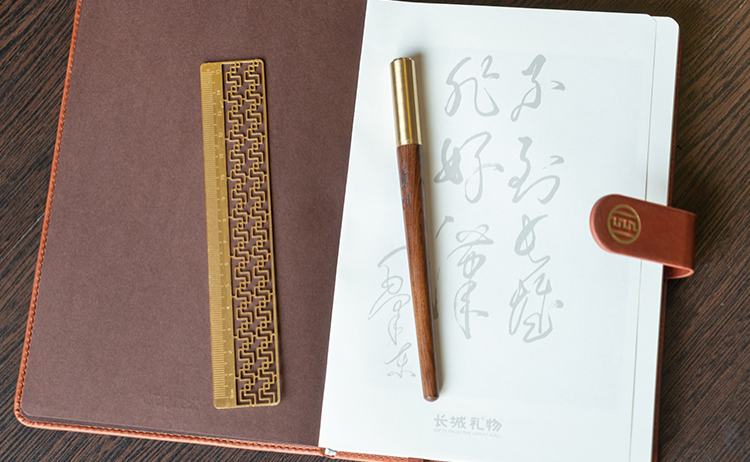 不到长城
非好汉
毛泽东
长城礼物